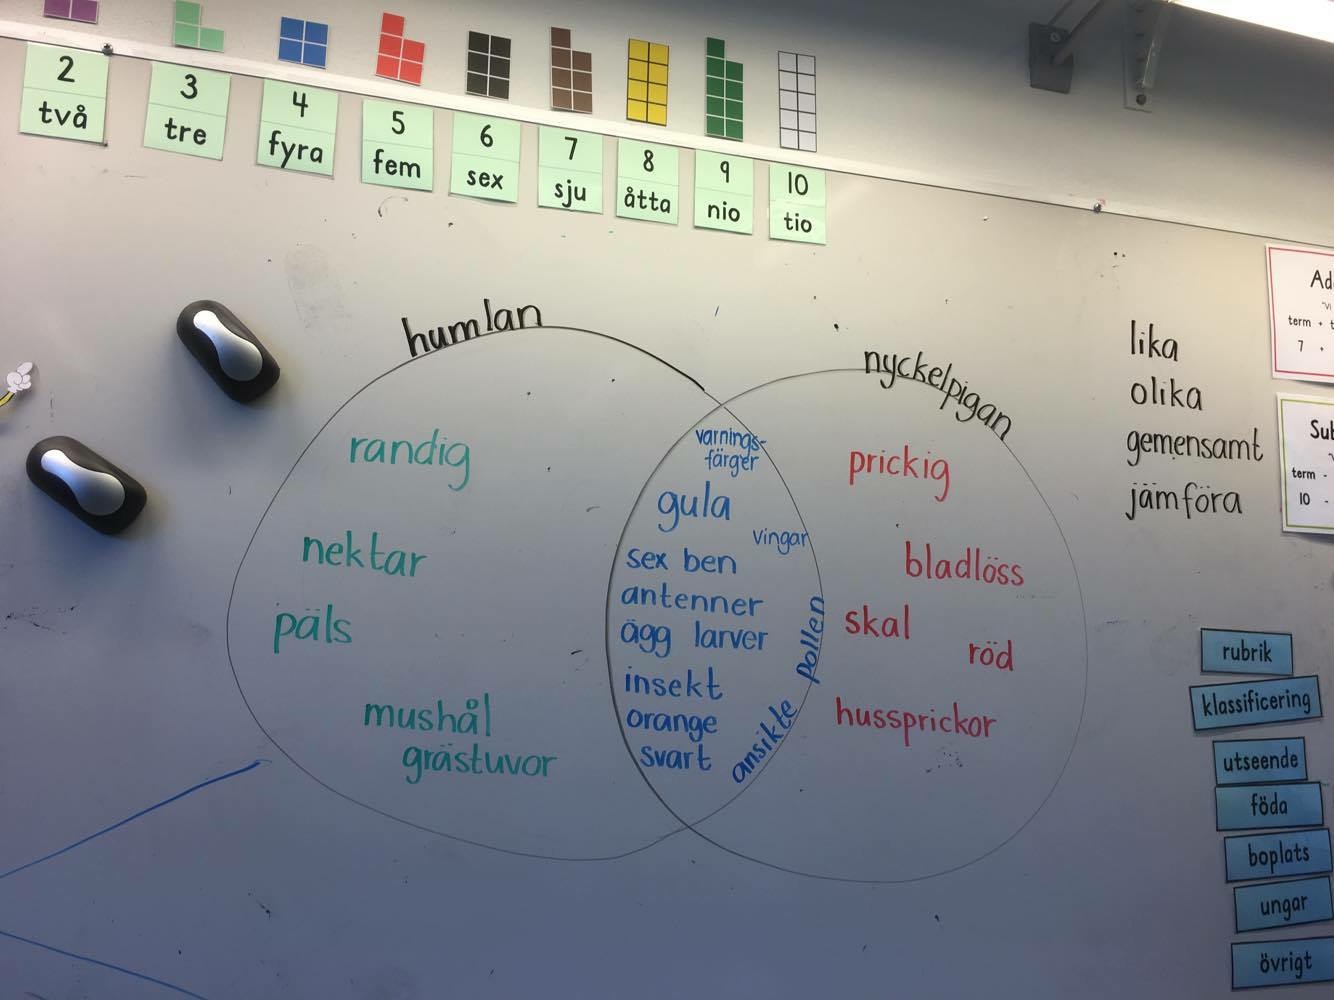 2
två
3
tre
4
fyra
5
fem
6
sex
7
sju
8
åtta
9
nio
10
tio
humlan
randig
nektar
päls
mushål
grästuvor
varnings-
färger
gula
vingar
sex ben
antenner
ägg larver
pollen
insekt
orange
svart
ansikte
nyckelpigan
prickig
bladlöss
skal
röd
hussprickor
lika
olika
gemensamt
jämföra
term +
7 +
term -
10 -
rubrik
klassificering
utseende
föda
boplats
ungar
övrigt